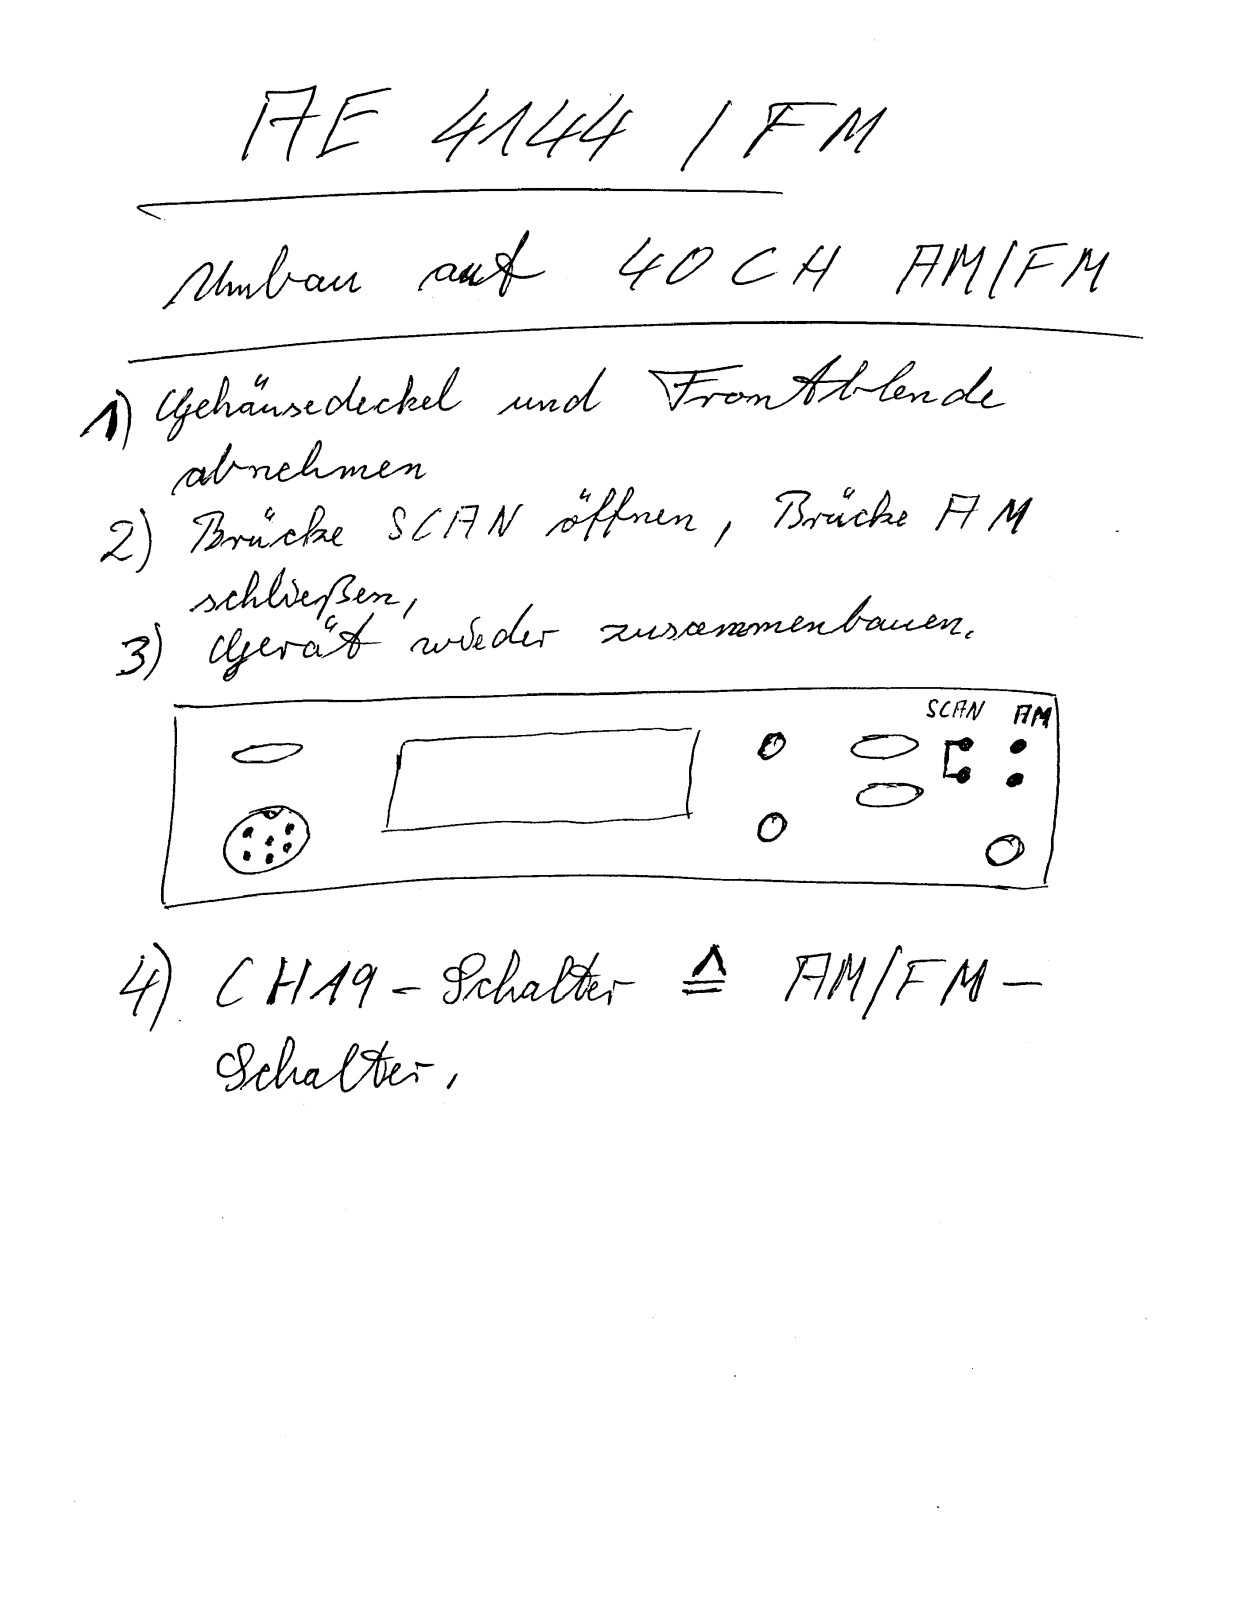 AE 4144 / FM
Umbau auf 40 CH AM/FM
1) Gehäusedeckel und Frontblende
abnehmen
2) Brücke SCAN öffnen, Brücke AM
schließen,
3) Gerät wieder zusammenbauen.
SCAN AM
4) CH19 - Schalter ≙ AM/FM -
Schalter,